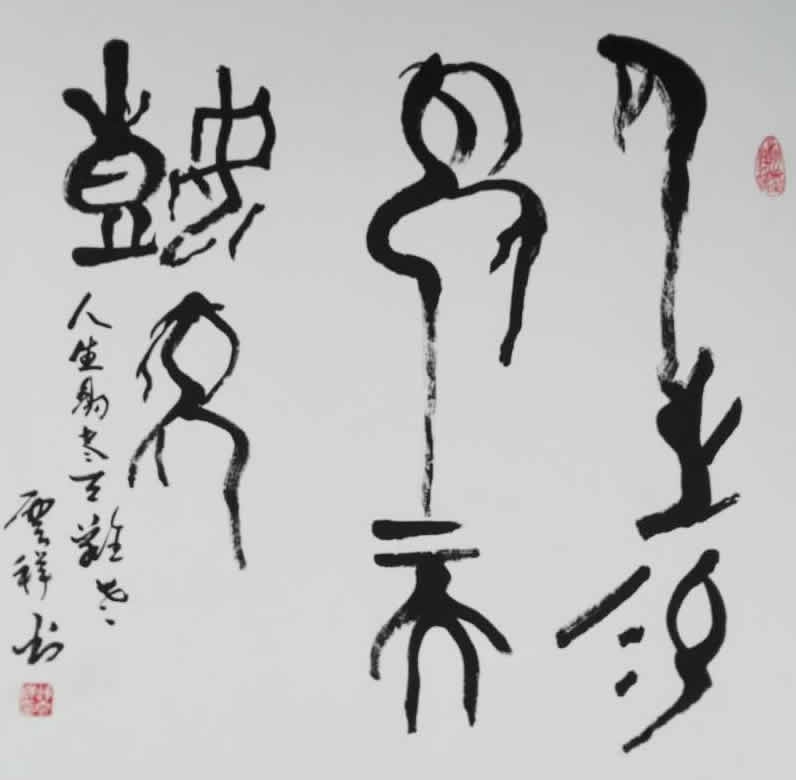 人生易
老天
難老
人生易老天難老
雲祥书